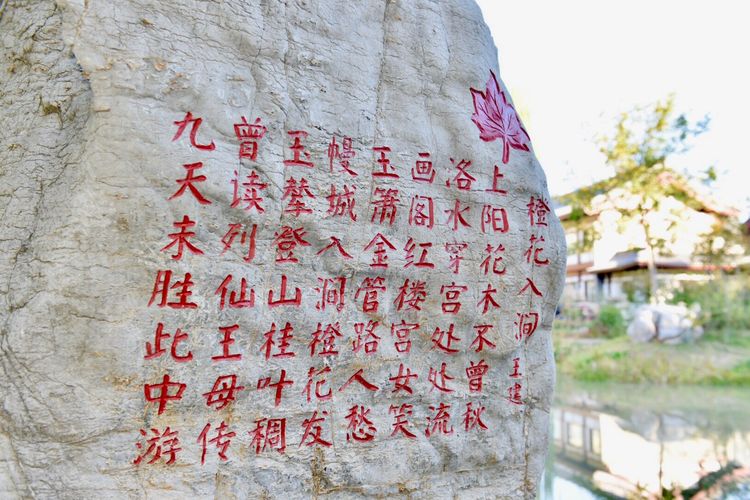 橙花入涧 王建
上阳花木不曾秋
洛水穿宫处处流
画阁红楼宫女笑
玉箫金管路人愁
幔城入涧橙花发
玉辇登山桂叶稠
曾读列仙王母传
九天未胜此中游